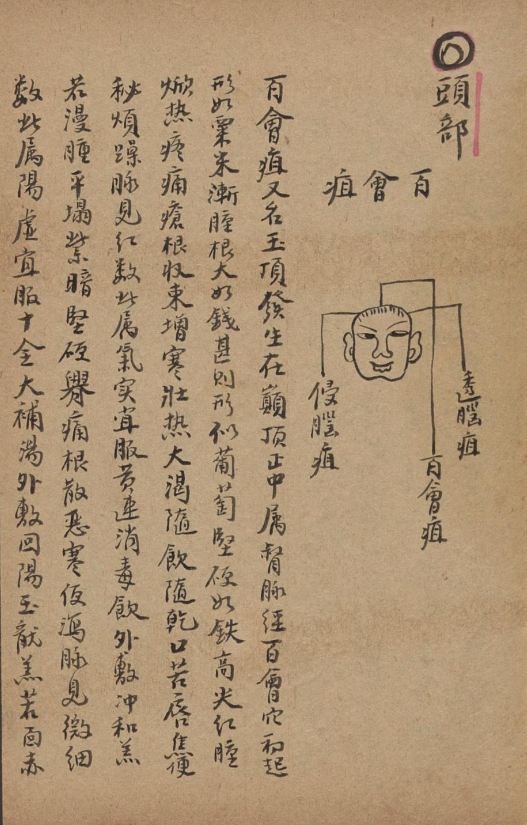 頭部
百會疽
透腦疽
百會疽
侵腦疽
百會疽又名玉頂發生在巔頂正中属督脉經百會穴初起
形如粟米漸腫根大如錢甚則形似葡萄堅硬如鉄高尖紅腫
焮热疼痛瘡根收束增寒壯热大渴隨飲隨乾口苦唇焦便
秘煩躁脉見紅数此属氣实宜服黄連消毒飲外敷冲和羔
若漫腫平塌紫暗堅硬㷫痛根散恶寒便瀉脉見微細
数此属陽虚宜服十全大補湯外敷回陽玉龍羔若面赤